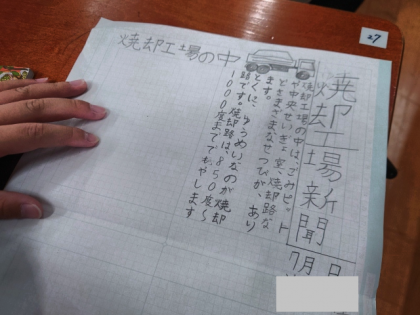 27
焼却工場新聞
7月 日
焼却工場の中
焼却工場の中は、ごみピット
や中央せいぎょ室、焼却路な
どさまざまなせつびが、あり
ます。
とくに、ゆうめいなのが焼却
路です。焼却路は、850度〜
1000度まででもやします